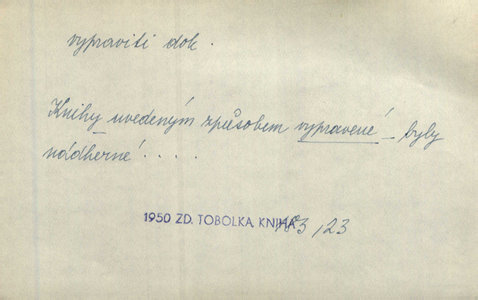 vypraviti dok.
Knihy uvedeným způsobem vypravené byly
nádherné.....
1950 ZD. TOBOLKA, KNIHA 3,23